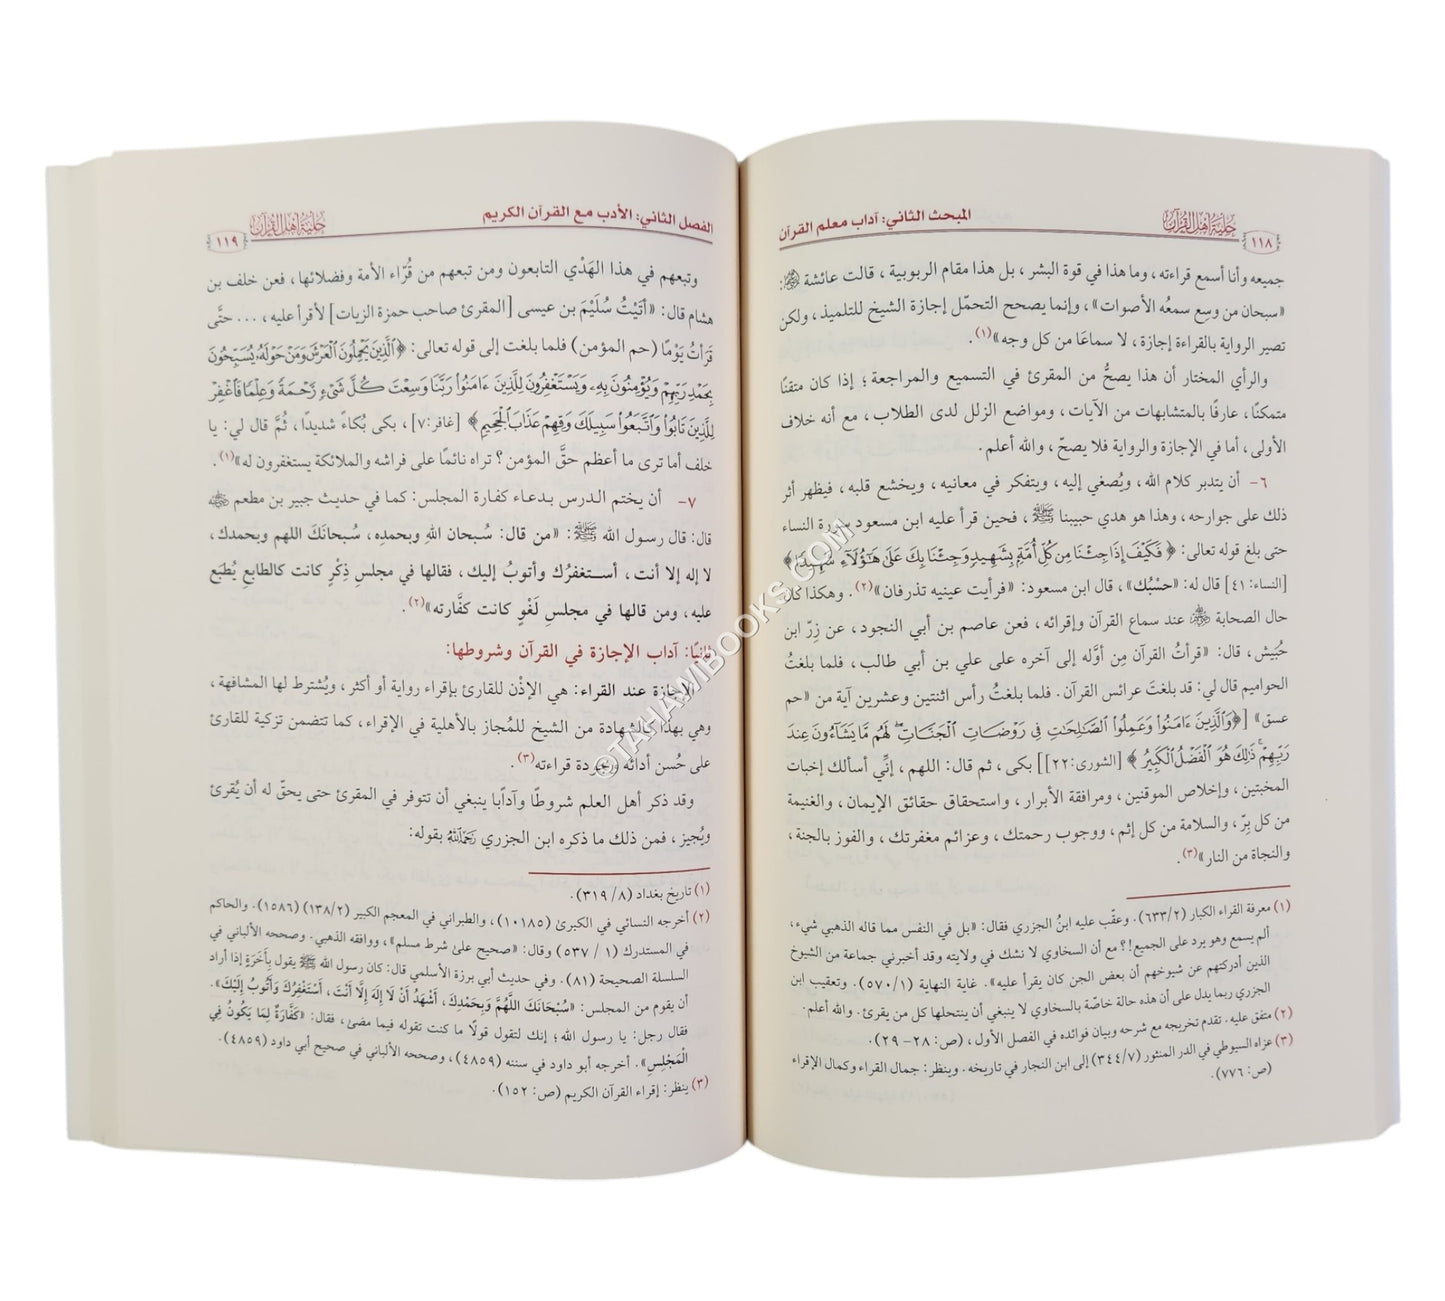 حلية أهل القرآن
١١٨
المبحث الثاني: آداب معلم القرآن
جميعه وأنا أسمع قراءته، وما هذا في قوة البشر، بل هذا مقام الربوبية، قالت عائشة ﵂:
«سبحان من وسع سمعُه الأصوات»، وإنما يصحح التحمّل إجازة الشيخ للتلميذ، ولكن
تصير الرواية بالقراءة إجازة، لا سماعًا من كل وجه»(١).
والرأي المختار أن هذا يصحُّ من المقرئ في التسميع والمراجعة؛ إذا كان متقنًا
متمكنًا، عارفًا بالمتشابهات من الآيات، ومواضع الزلل لدى الطلاب، مع أنه خلاف
الأولى، أما في الإجازة والرواية فلا يصحّ، والله أعلم.
٦- أن يتدبر كلام الله، ويُصغي إليه، ويتفكر في معانيه، ويخشع قلبه، فيظهر أثر
ذلك على جوارحه، وهذا هو هدي حبيبنا ﷺ، فحين قرأ عليه ابن مسعود سورة النساء
حتى بلغ قوله تعالى: ﴿فَكَيْفَ إِذَا جِئْنَا مِن كُلِّ أُمَّةٍ بِشَهِيدٍ وَجِئْنَا بِكَ عَلَىٰ هَٰؤُلَاءِ شَهِيدًا﴾
[النساء: ٤١] قال له: «حسْبُك»، قال ابن مسعود: «فرأيت عينيه تذرفان»(٢). وهكذا كان
حال الصحابة ﵃ عند سماع القرآن وإقرائه، فعن عاصم بن أبي النجود، عن زِرّ ابن
حُبيش، قال: «قرأتُ القرآن مِن أوَّله إلى آخره على علي بن أبي طالب، فلما بلغتُ
الحواميم قال لي: قد بلغتَ عرائس القرآن. فلما بلغتُ رأس اثنتين وعشرين آية من «حم
عسق» [﴿وَالَّذِينَ ءَامَنُوا وَعَمِلُوا الصَّالِحَاتِ فِي رَوْضَاتِ الْجَنَّاتِ لَهُم مَّا يَشَاءُونَ عِندَ
رَبِّهِمْ ذَٰلِكَ هُوَ الْفَضْلُ الْكَبِيرُ﴾ [الشورى: ٢٢]] بكى، ثم قال: اللهم، إنِّي أسألك إخبات
المخبتين، وإخلاص الموقنين، ومرافقة الأبرار، واستحقاق حقائق الإيمان، والغنيمة
من كل بِرّ، والسلامة من كل إثم، ووجوب رحمتك، وعزائم مغفرتك، والفوز بالجنة،
والنجاة من النار»(٣).
(١) معرفة القراء الكبار (٢/٦٣٣). وعقّب عليه ابنُ الجزري فقال: «بل في النفس مما قاله الذهبي شيء،
ألم يسمع وهو يرد على الجميع!؟ مع أن السخاوي لا نشك في ولايته وقد أخبرني جماعة من الشيوخ
الذين أدركتهم عن شيوخهم أن بعض الجن كان يقرأ عليه». غاية النهاية (١/٥٧٠). وتعقيب ابن
الجزري ربما يدل على أن هذه حالة خاصّة بالسخاوي لا ينبغي أن ينتحلها كل من يقرئ. والله أعلم.
(٢) متفق عليه. تقدم تخريجه مع شرحه وبيان فوائده في الفصل الأول، (ص: ٢٨- ٢٩).
(٣) عزاه السيوطي في الدر المنثور (٧/٣٤٤) إلى ابن النجار في تاريخه. وينظر: جمال القراء وكمال الإقراء
(ص: ٧٧٦).
الفصل الثاني: الأدب مع القرآن الكريم
حلية أهل القرآن
١١٩
وتبعهم في هذا الهَدْي التابعون ومن تبعهم من قُرّاء الأمة وفضلائها، فعن خلف بن
هشام قال: «أتَيْتُ سُلَيْمَ بن عيسى [المقرئ صاحب حمزة الزيات] لأقرأ عليه، ... حتَّى
قرَأتُ يَوْمًا (حم المؤمن) فلما بلغت إلى قوله تعالى: ﴿الَّذِينَ يَحْمِلُونَ الْعَرْشَ وَمَنْ حَوْلَهُ يُسَبِّحُونَ
بِحَمْدِ رَبِّهِمْ وَيُؤْمِنُونَ بِهِ وَيَسْتَغْفِرُونَ لِلَّذِينَ ءَامَنُوا رَبَّنَا وَسِعْتَ كُلَّ شَيْءٍ رَّحْمَةً وَعِلْمًا فَاغْفِرْ
لِلَّذِينَ تَابُوا وَاتَّبَعُوا سَبِيلَكَ وَقِهِمْ عَذَابَ الْجَحِيمِ﴾ [غافر:٧]، بكى بُكاءً شديدًا، ثُمَّ قال لي: يا
خلف أما ترى ما أعظم حقَّ المؤمن؟ تراه نائمًا على فراشه والملائكة يستغفرون له»(١).
٧- أن يختم الدرس بدعاء كفارة المجلس: كما في حديث جبير بن مطعم ﵁
قال: قال رسول الله ﷺ: «من قال: سُبحان اللهِ وبحمدِه، سُبحانَكَ اللهم وبحمدك،
لا إله إلا أنت، أستغفرُك وأتوبُ إليك، فقالها في مجلسِ ذِكْرٍ كانت كالطابعِ يُطبَع
عليه، ومن قالها في مجلسِ لَغْوٍ كانت كفَّارته»(٢).
ثانيًا: آداب الإجازة في القرآن وشروطها:
الإجازة عند القراء: هي الإذْن للقارئ بإقراء رواية أو أكثر، ويُشترط لها المشافهة،
وهي بهذا كالشهادة من الشيخ للمُجاز بالأهلية في الإقراء، كما تتضمن تزكية للقارئ
على حُسن أدائه وجودة قراءته(٣).
وقد ذكر أهل العلم شروطًا وآدابًا ينبغي أن تتوفر في المقرئ حتى يحقّ له أن يُقرئ
ويُجيز، فمن ذلك ما ذكره ابن الجزري رَحِمَهُ اللَّهُ بقوله:
(١) تاريخ بغداد (٨/ ٣١٩).
(٢) أخرجه النسائي في الكبرى (١٠١٨٥)، والطبراني في المعجم الكبير (٢/١٣٨) (١٥٨٦). والحاكم
في المستدرك (١ / ٥٣٧) وقال: «صحيح على شرط مسلم»، ووافقه الذهبي. وصححه الألباني في
السلسلة الصحيحة (٨١). وفي حديث أبي برزة الأسلمي قال: كان رسول الله ﷺ يقول بِأَخَرَةٍ إذا أراد
أن يقوم من المجلس: «سُبْحَانَكَ اللَّهُمَّ وَبِحَمْدِكَ، أَشْهَدُ أَنْ لَا إِلَهَ إِلَّا أَنْتَ، أَسْتَغْفِرُكَ وَأَتُوبُ إِلَيْكَ».
فقال رجل: يا رسول الله؛ إنك لتقول قولًا ما كنت تقوله فيما مضى، فقال: «كَفَّارَةٌ لِمَا يَكُونُ فِي
الْمَجْلِسِ». أخرجه أبو داود في سننه (٤٨٥٩)، وصححه الألباني في صحيح أبي داود (٤٨٥٩).
(٣) ينظر: إقراء القرآن الكريم (ص: ١٥٢).
©TAHAWIBOOKS.COM